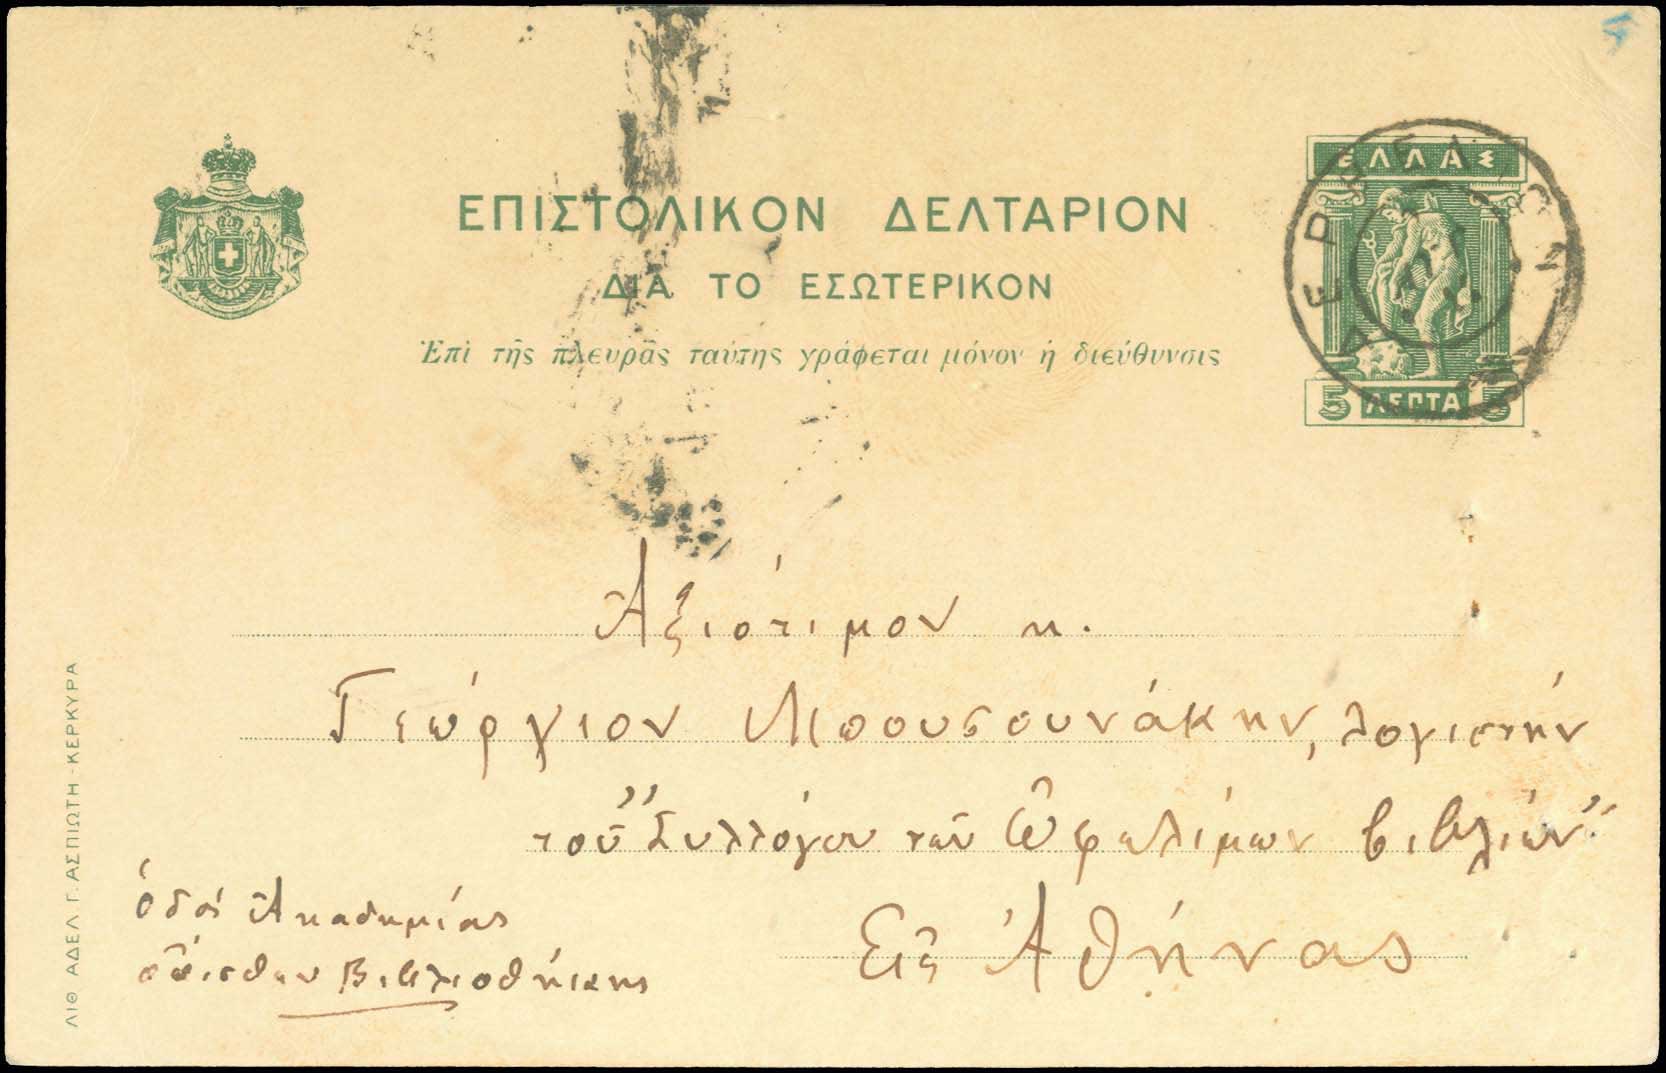 ΕΠΙΣΤΟΛΙΚΟΝ ΔΕΛΤΑΡΙΟΝ
ΔΙΑ ΤΟ ΕΣΩΤΕΡΙΚΟΝ
Ἐπὶ τῆς πλευρᾶς ταύτης γράφεται μόνον ἡ διεύθυνσις
ΕΛΛΑΣ
5 ΛΕΠΤΑ 5
Ἀξιότιμον κ.
Γεώργιον Μπουσουνάκην, λογιστὴν
τοῦ "Συλλόγου τῶν Ὠφελίμων βιβλίων"
Εἰς Ἀθήνας
ὁδὸς Ἀκαδημίας
ὄπισθεν Βιβλιοθήκης
ΛΙΘ ΑΔΕΛ Γ. ΑΣΠΙΩΤΗ - ΚΕΡΚΥΡΑ